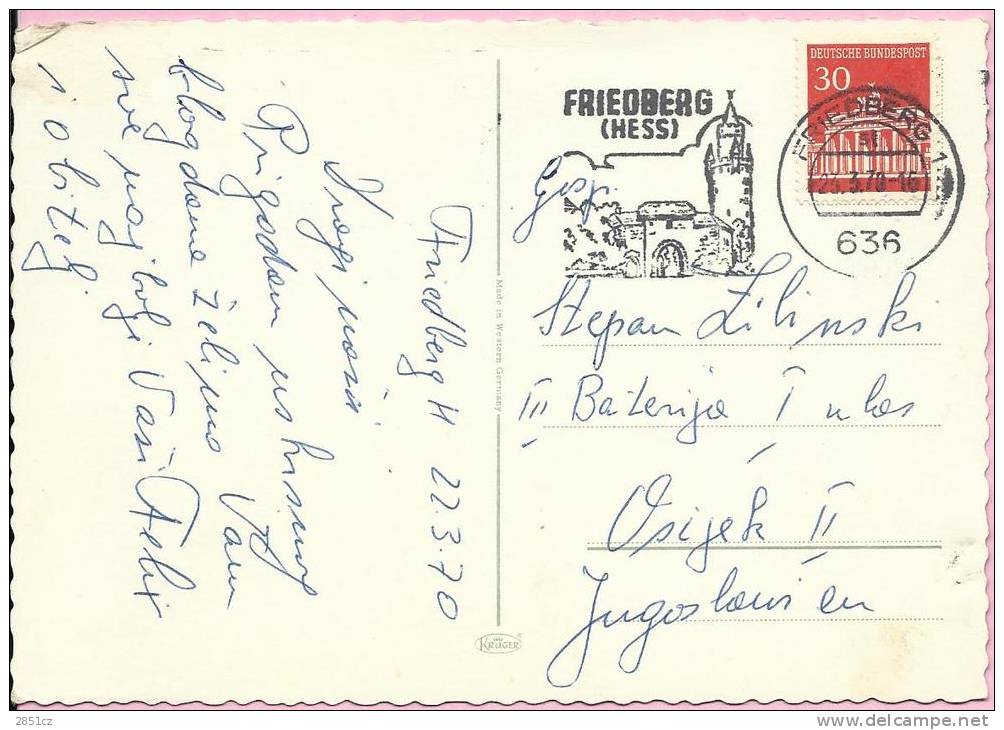 Friedberg H 22.3.70
Dragi naši
Prigodom uskrsnog
blagdana želimo Vam
sve najbolje Vaši Felix
i obitelj
Made in Western Germany
KRÜGER
FRIEDBERG
(HESS)
DEUTSCHE BUNDESPOST
30
FRIEDBERG 1
23.3.70-16
636
Gosp.
Stepan Žilinski
III Baterija I
Osijek II
Jugoslawien
2851cz
www.delcampe.net